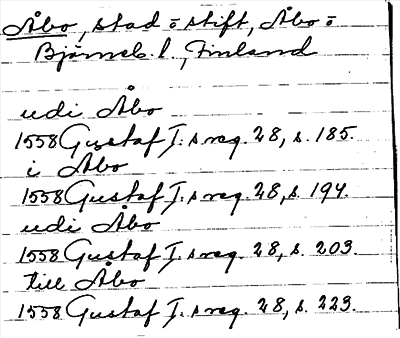 Åbo, stad o stift, Åbo o
Björneb. l, Finland
udi Åbo
1558 Gustaf I. s reg. 28, s. 185.
i Åbo
1558 Gustaf I. s reg. 28, s. 194.
udi Åbo
1558 Gustaf I. s reg. 28, s. 203.
till Åbo
1558 Gustaf I. s reg. 28, s. 223.